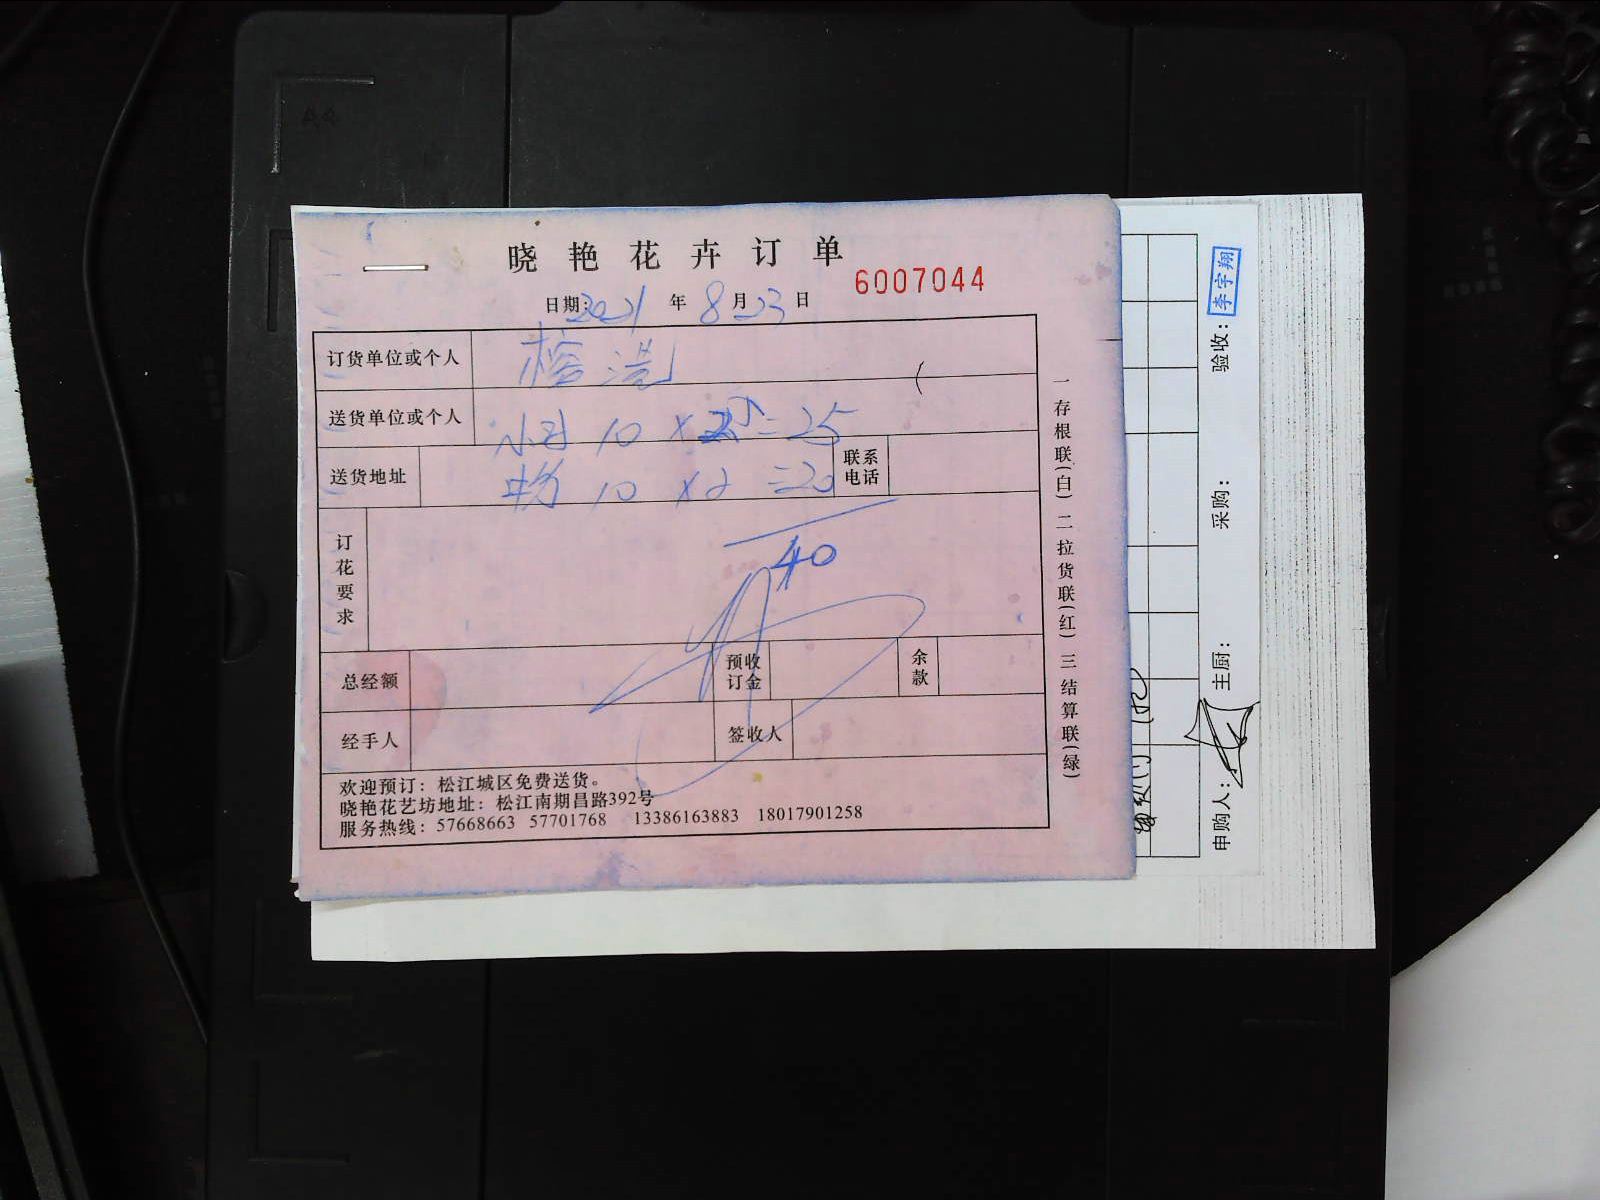 晓艳花卉订单
6007044
日期: 2021 年 8 月 23 日
订货单位或个人 榕港
送货单位或个人
10 × = 25
送货地址 10 × 2 = 20 联系电话
订花要求
40
总经额 预收订金 余款
经手人 签收人
欢迎预订：松江城区免费送货。
晓艳花艺坊地址：松江南期昌路392号
服务热线：57668663 57701768 13386163883 18017901258
一存根联(白) 二拉货联(红) 三结算联(绿)
申购人: 主厨: 采购: 验收: 李宇翔
A4